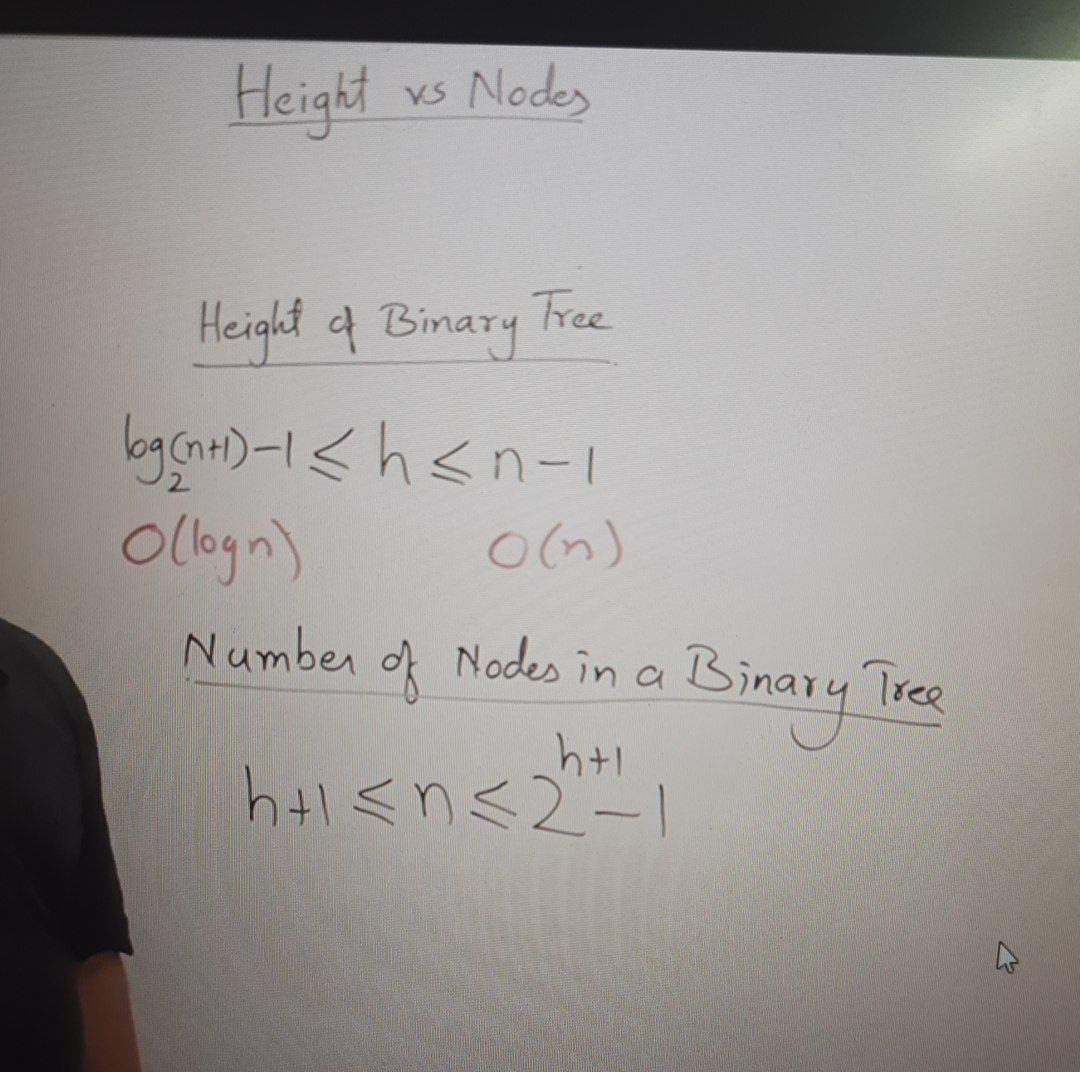 Height vs Nodes
Height of Binary Tree
log₂(n+1)-1 ≤ h ≤ n-1
O(logn) O(n)
Number of Nodes in a Binary Tree
h+1 ≤ n ≤ 2^{h+1}-1